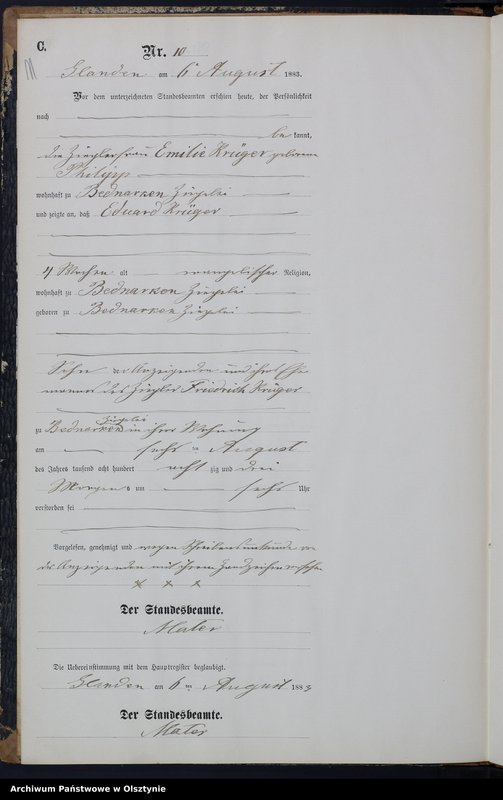 C.
Nr. 10
Glanden am 6 August 1883.
Vor dem unterzeichneten Standesbeamten erschien heute, der Persönlichkeit
nach
be kannt,
die Zieglerfrau Emilie Krüger geborene
Philipp
wohnhaft zu Bednarken Ziegelei
und zeigte an, daß Eduard Krüger
4 Wochen alt evangelischer Religion,
wohnhaft zu Bednarken Ziegelei
geboren zu Bednarken Ziegelei
Sohn der Anzeigenden und ihres Ehe
mannes des Ziegler Friedrich Krüger
Ziegelei
zu Bednarken in ihrer Wohnung
am sechs ten August
des Jahres tausend acht hundert acht zig und drei
Morgens um sechs Uhr
verstorben sei
Vorgelesen, genehmigt und wegen Schreibensunkunde von
der Anzeigenden mit ihrem Handzeichen versehen
x x x
Der Standesbeamte.
Mater
Die Uebereinstimmung mit dem Hauptregister beglaubigt.
Glanden am 6 ten August 1883
Der Standesbeamte.
Mater
Archiwum Państwowe w Olsztynie